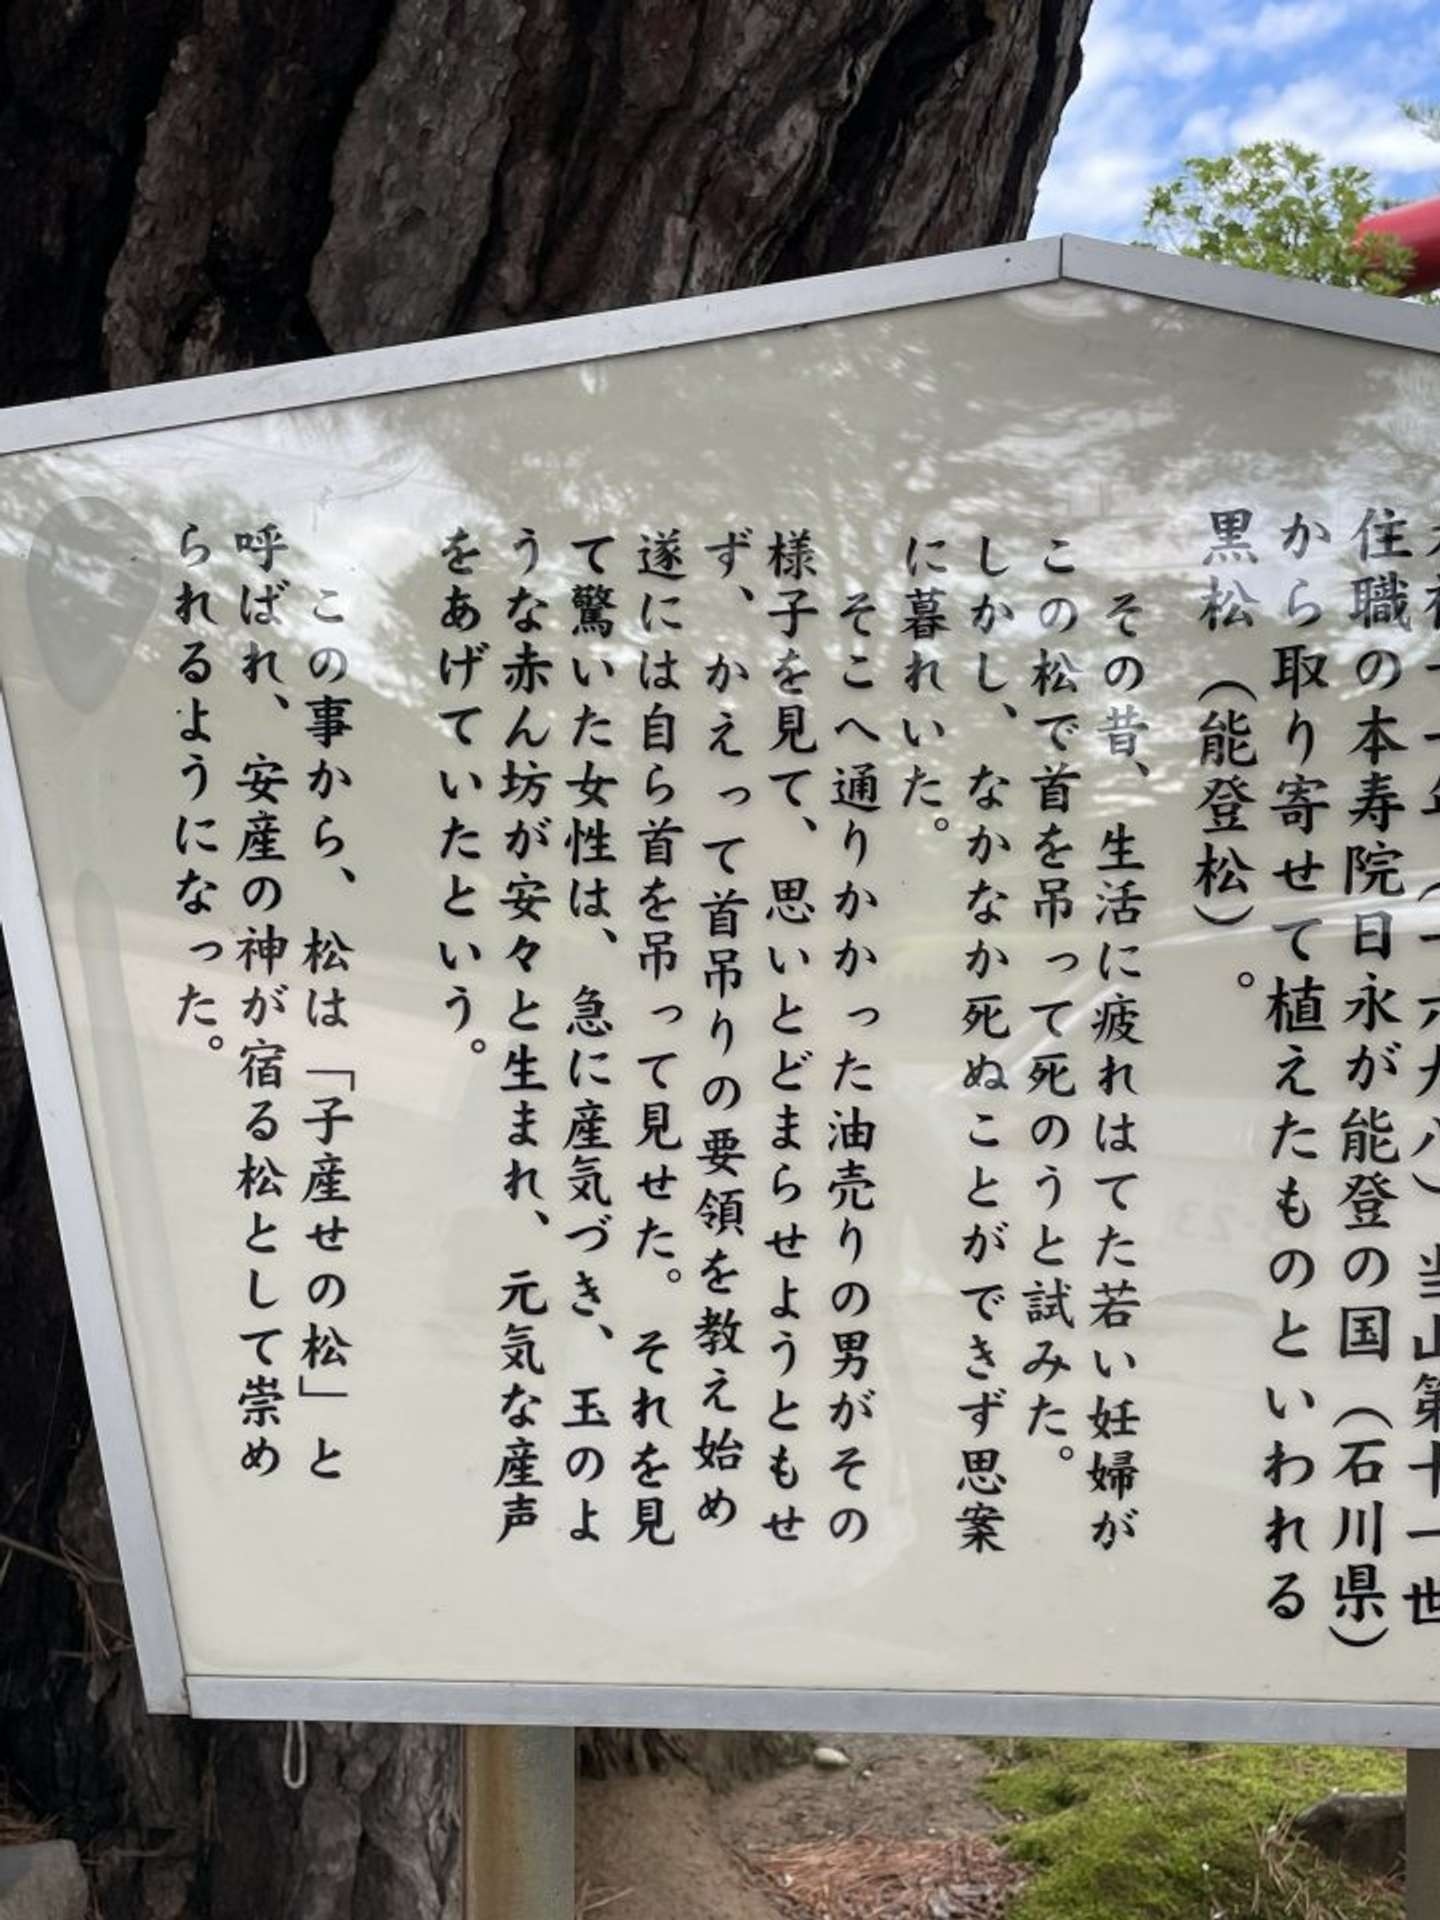 元禄十一年(一六九八)当山第十一世
住職の本寿院日永が能登の国(石川県)
から取り寄せて植えたものといわれる
黒松(能登松)。
その昔、生活に疲れはてた若い妊婦が
この松で首を吊って死のうと試みた。
しかし、なかなか死ぬことができず思案
に暮れいた。
そこへ通りかかった油売りの男がその
様子を見て、思いとどまらせようともせ
ず、かえって首吊りの要領を教え始め
遂には自ら首を吊って見せた。それを見
て驚いた女性は、急に産気づき、玉のよ
うな赤ん坊が安々と生まれ、元気な産声
をあげていたという。
この事から、松は「子産せの松」と
呼ばれ、安産の神が宿る松として崇め
られるようになった。